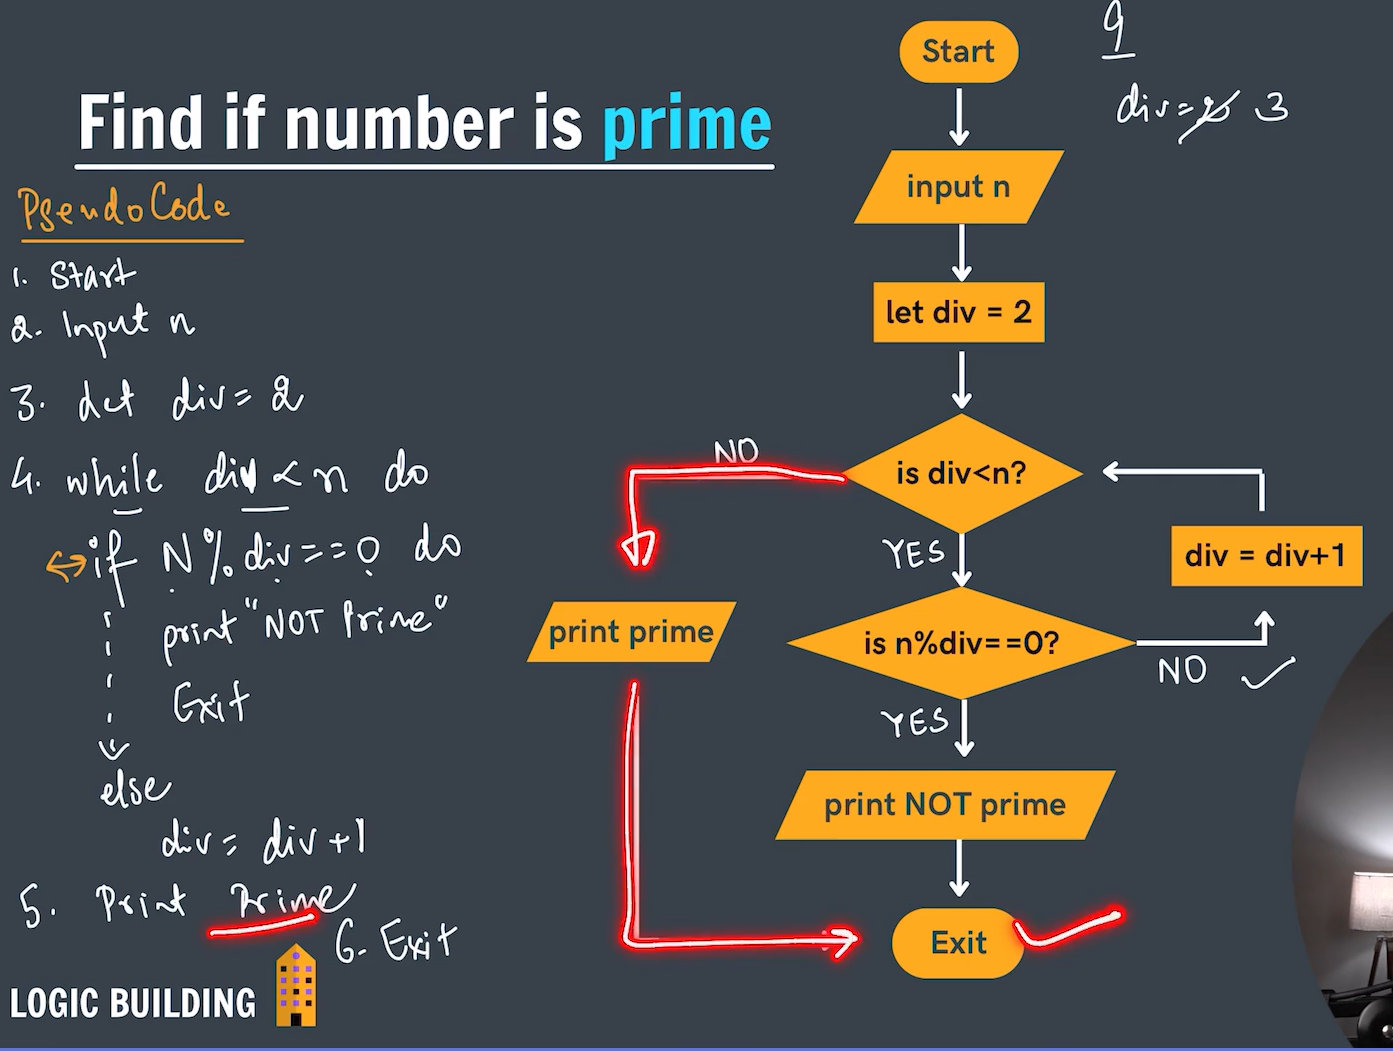 Find if number is prime
PseudoCode
1. Start
2. Input n
3. Let div = 2
4. while div < n do
if N % div == 0 do
print "NOT Prime"
Exit
else
div = div +1
5. Print Prime
6- Exit
LOGIC BUILDING
9
div = 2 3
Start
input n
let div = 2
is div<n?
NO
print prime
YES
div = div+1
is n%div==0?
NO
YES
print NOT prime
Exit